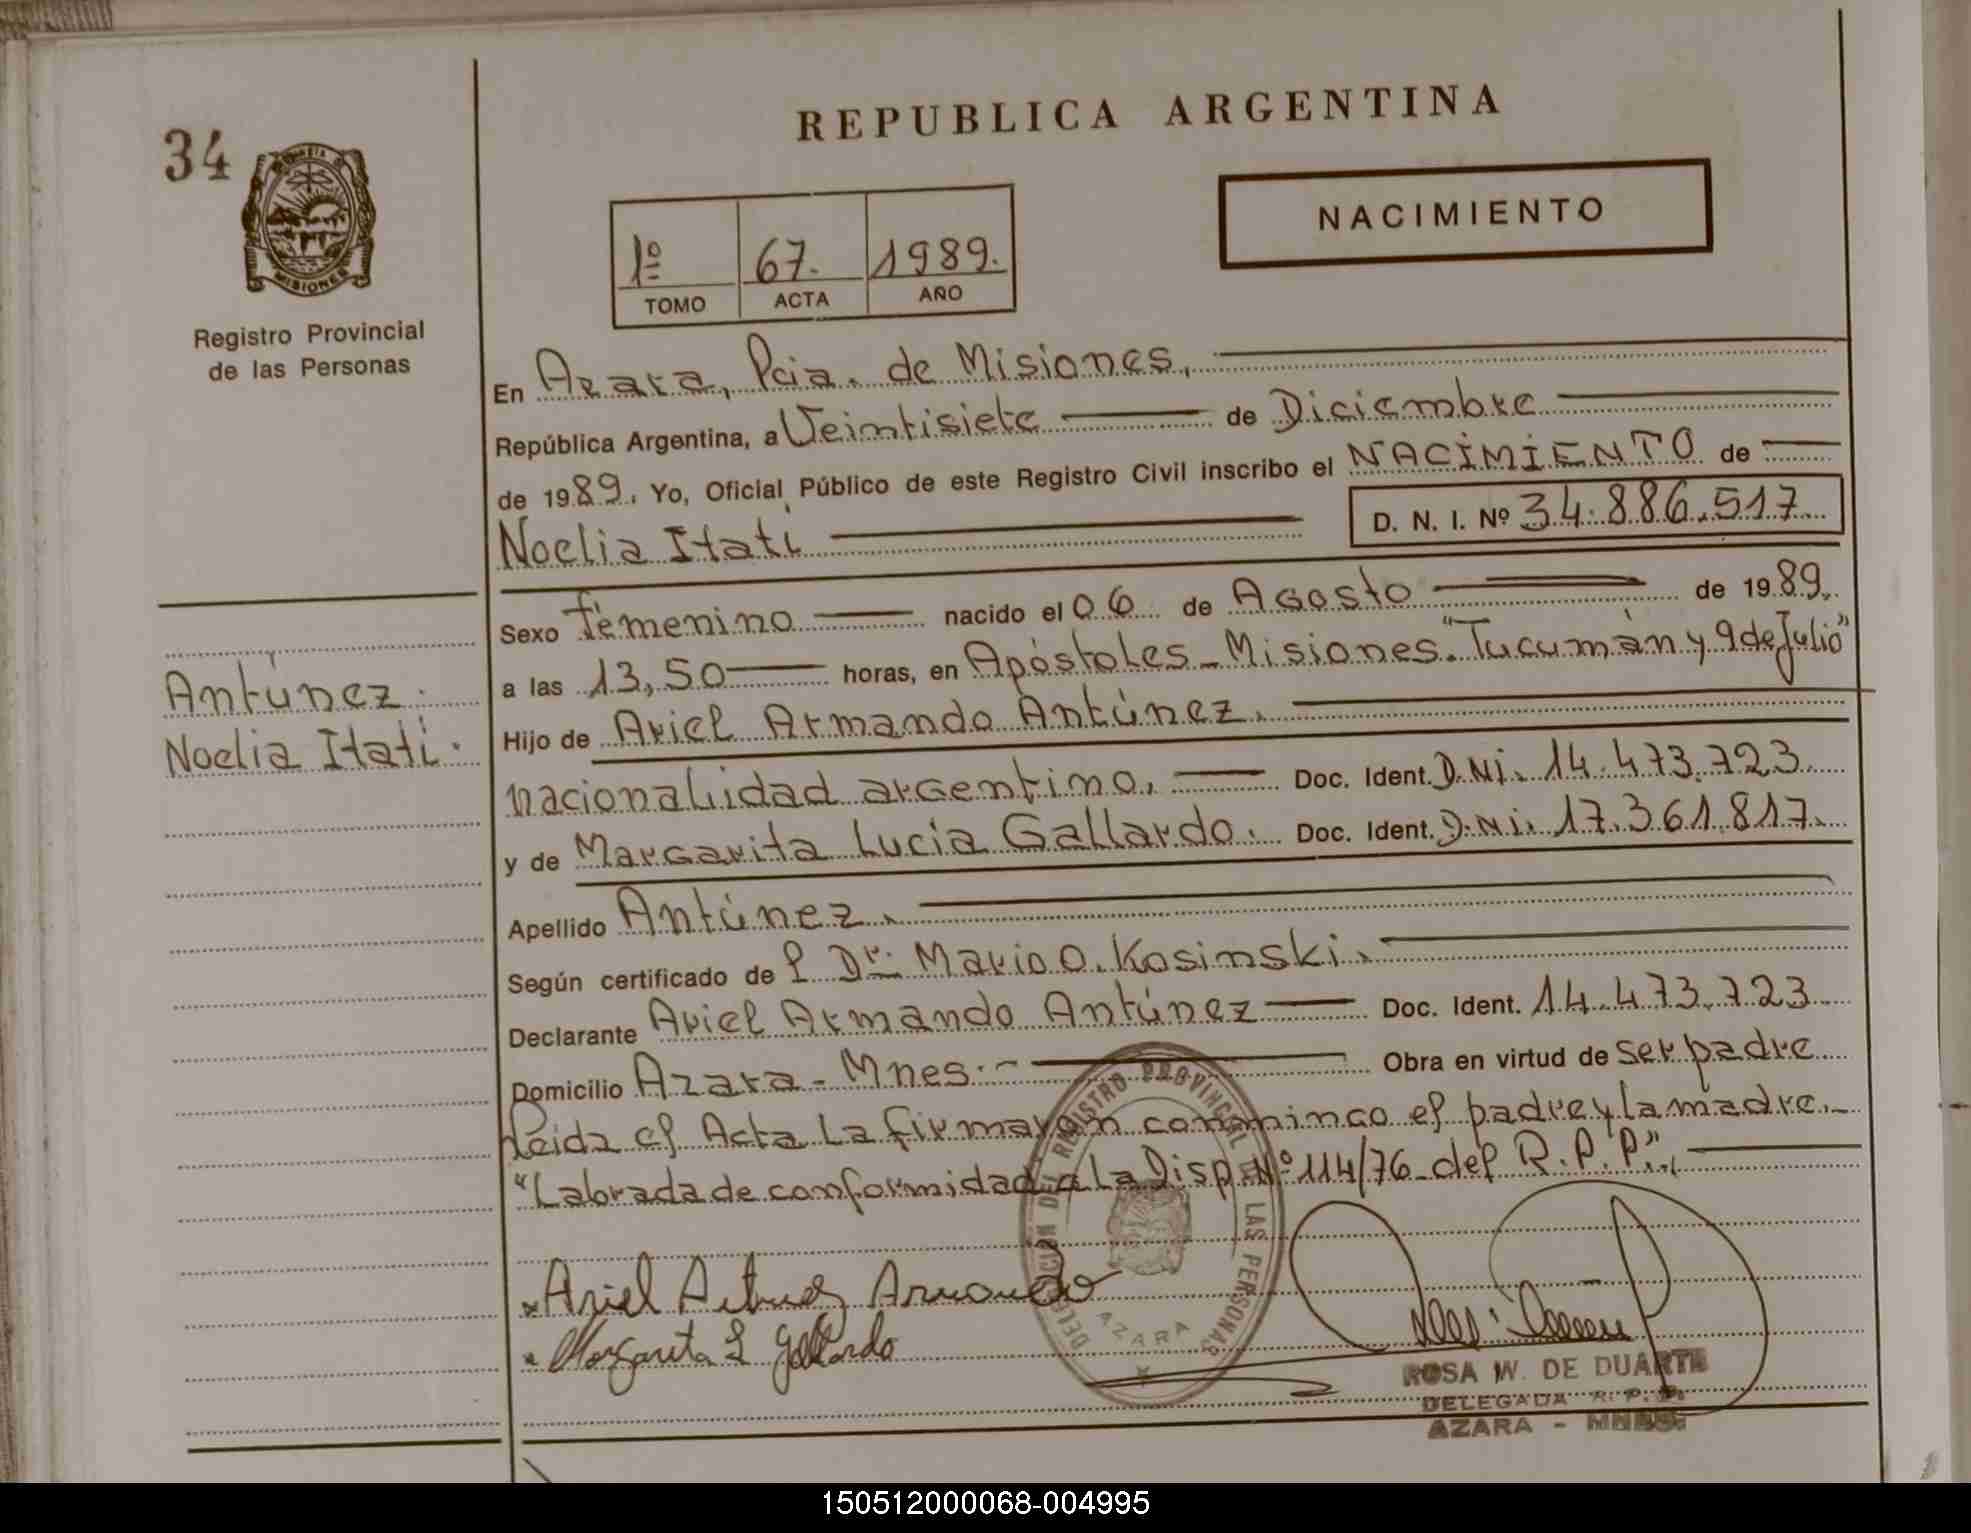 REPUBLICA ARGENTINA
34
MISIONES
Registro Provincial
de las Personas
1º 67. 1989.
TOMO ACTA AÑO
NACIMIENTO
En Azara, Pcia. de Misiones,
República Argentina, a Veintisiete de Diciembre
de 1989. Yo, Oficial Público de este Registro Civil inscribo el NACIMIENTO de
Noelia Itatí D. N. I. Nº 34.886.517.
Sexo femenino nacido el 06 de Agosto de 1989.
a las 13,50 horas, en Apóstoles - Misiones. "Tucumán y 9 de Julio"
Antúnez.
Noelia Itatí.
Hijo de Ariel Armando Antúnez.
nacionalidad argentino. Doc. Ident. D.Ni. 14.473.723.
y de Margarita Lucia Gallardo. Doc. Ident. D.Ni. 17.361.817.
Apellido Antúnez.
Según certificado de l Dr. Mario O. Kosinski.
Declarante Ariel Armando Antúnez Doc. Ident. 14.473.723
Domicilio Azara - Mnes. - Obra en virtud de ser padre
leida el Acta la firmaron conmingo el padre y la madre. -
"Labrada de conformidad a la Disp. Nº 114/76 del R.P.P".
DELEGACION DEL REGISTRO PROVINCIAL DE LAS PERSONAS
AZARA
Ariel Armando
Margarita L Gallardo
ROSA W. DE DUARTE
DELEGADA R. P. P.
AZARA - MNES.
150512000068-004995